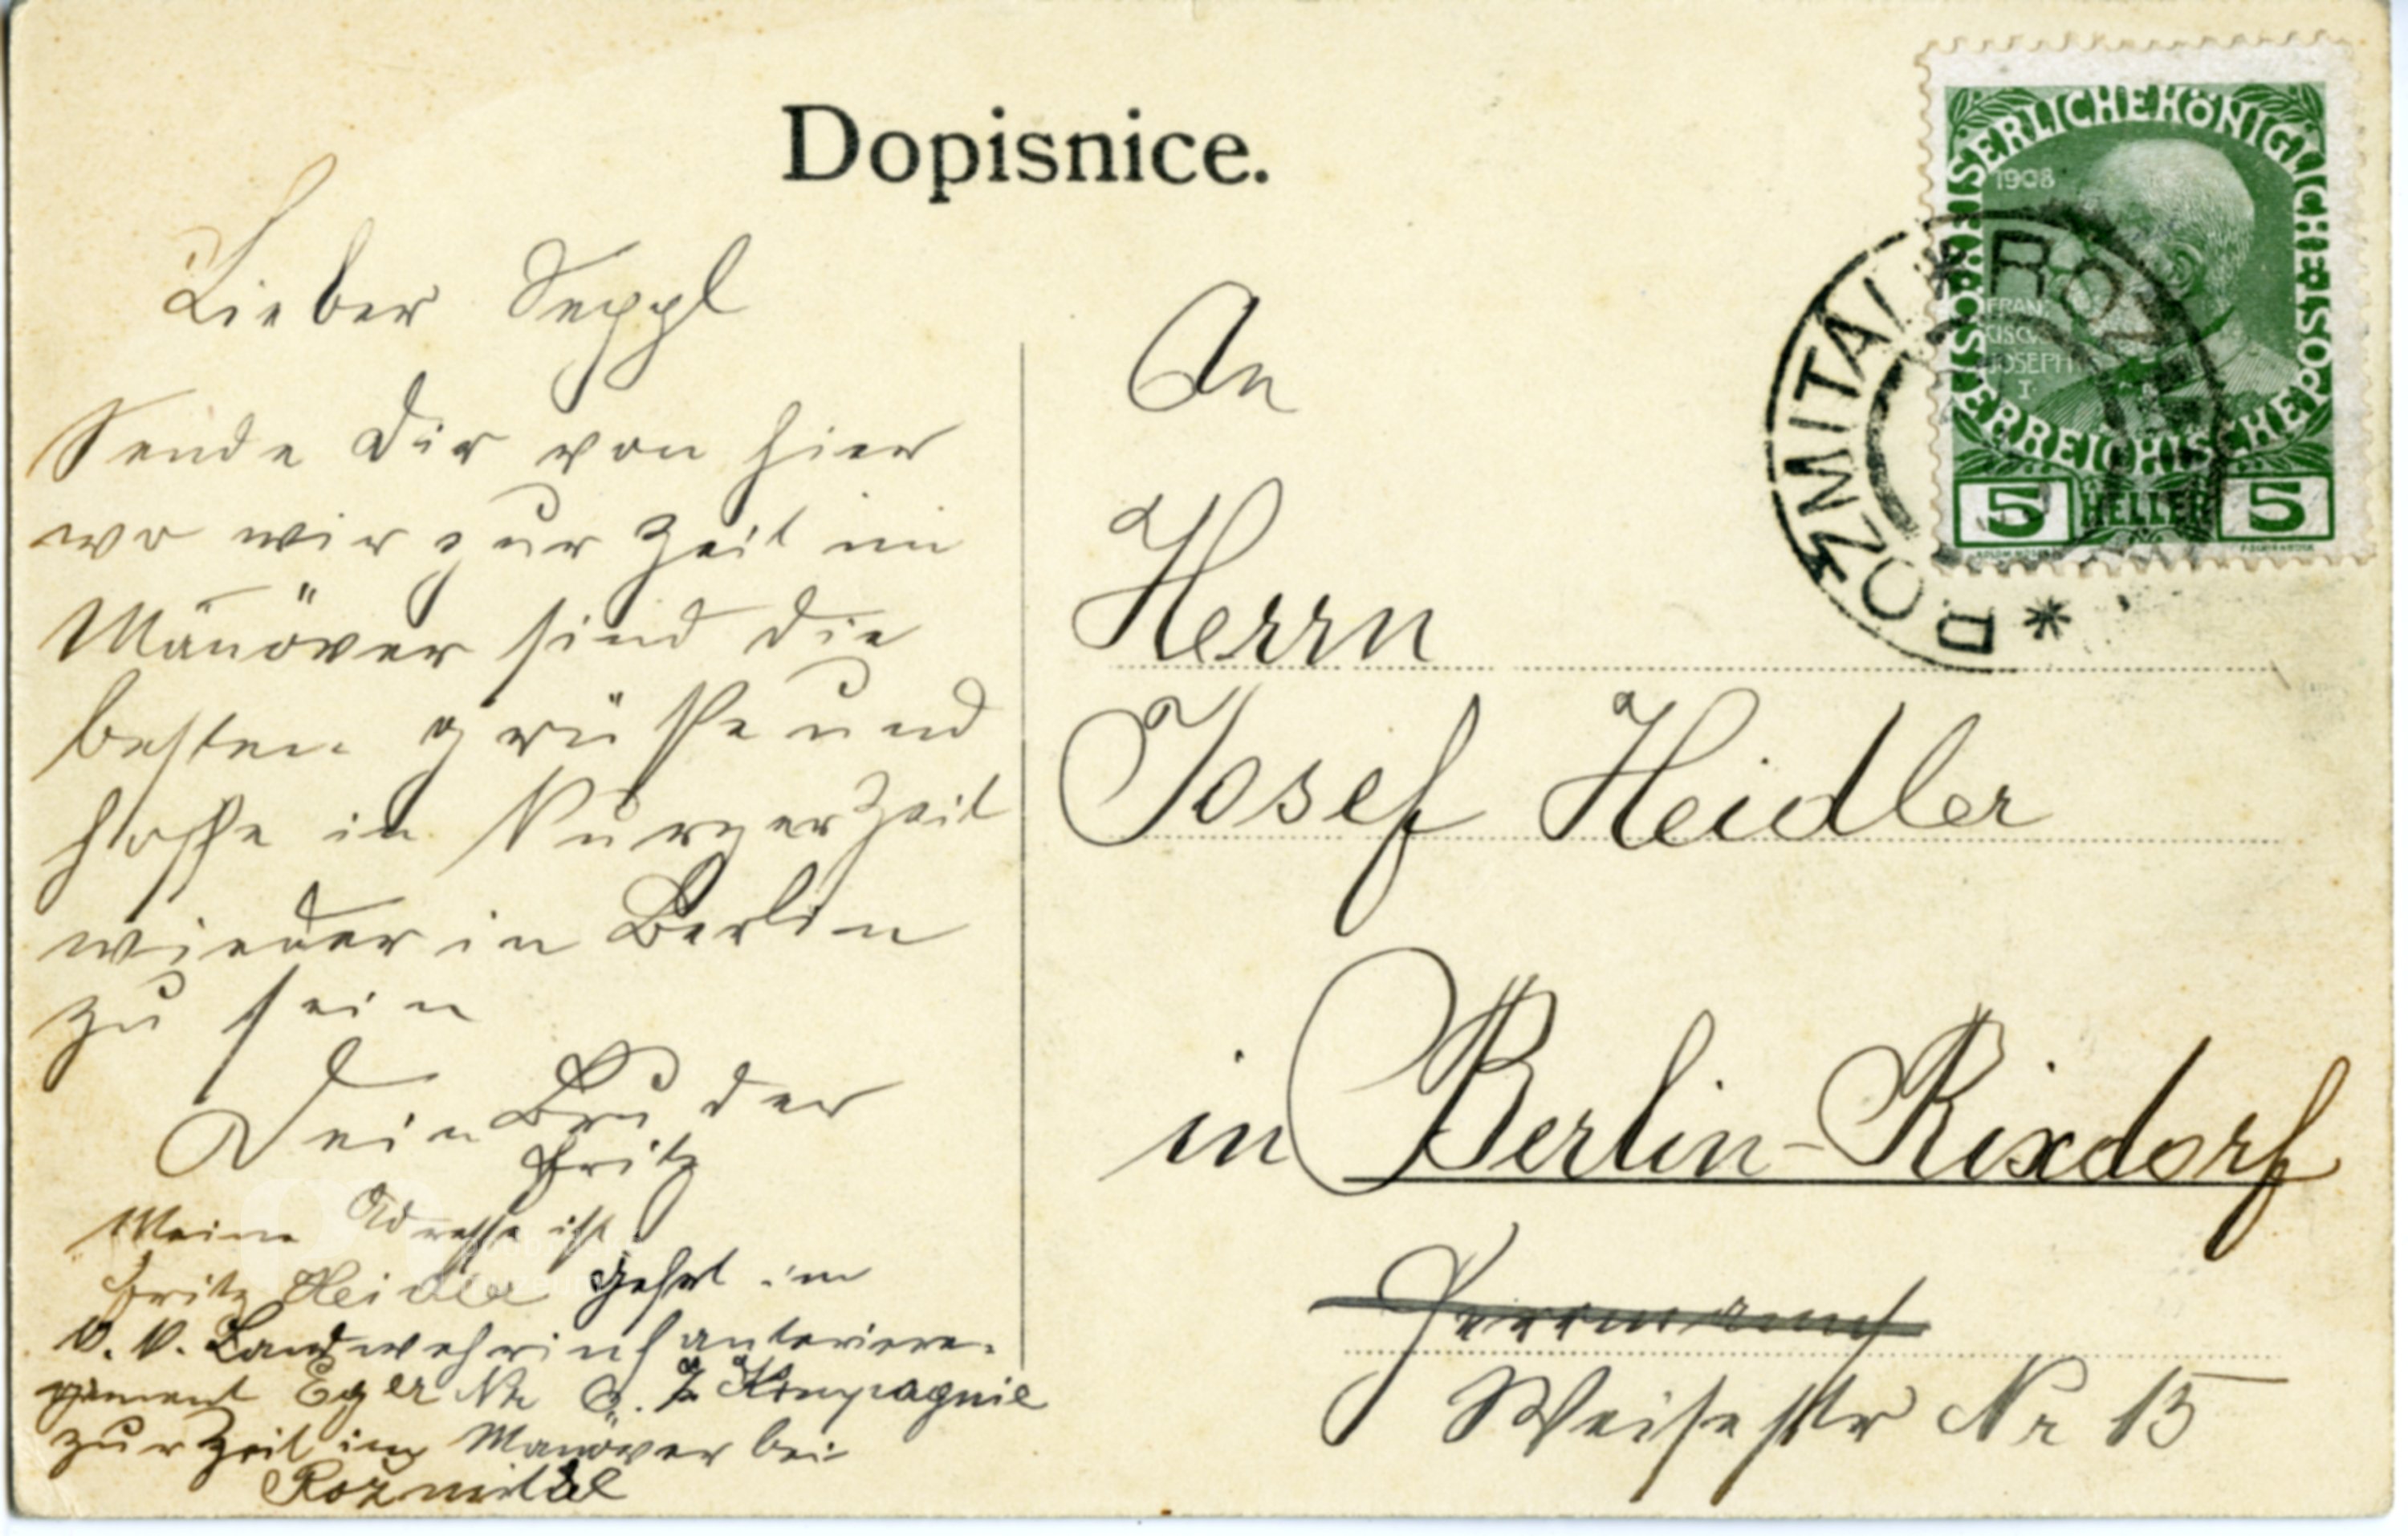 Dopisnice.
Lieber Seppl
Sende Dir von hier
wo wir zur Zeit im
Manöver sind die
besten grüße und
hoffe in Kurzer Zeit
wieder in Berlin
zu sein
Dein Bruder
Fritz
Meine Adresse ist
Fritz Heidler im
K. K. Landwehrinfanteriere-
giment Eger Nr 6. Kompagnie
zur Zeit im Manöver bei
Rozmital
An
Herrn
Josef Heidler
in Berlin-Rixdorf
Weisestr Nr 15
KAISERLICHE KÖNIGLICHE ÖSTERREICHISCHE POST
1908
FRAN
CISCVS
JOSEPH
I.
5 HELLER 5
ROŽMITÁL * ROŽMITAL *